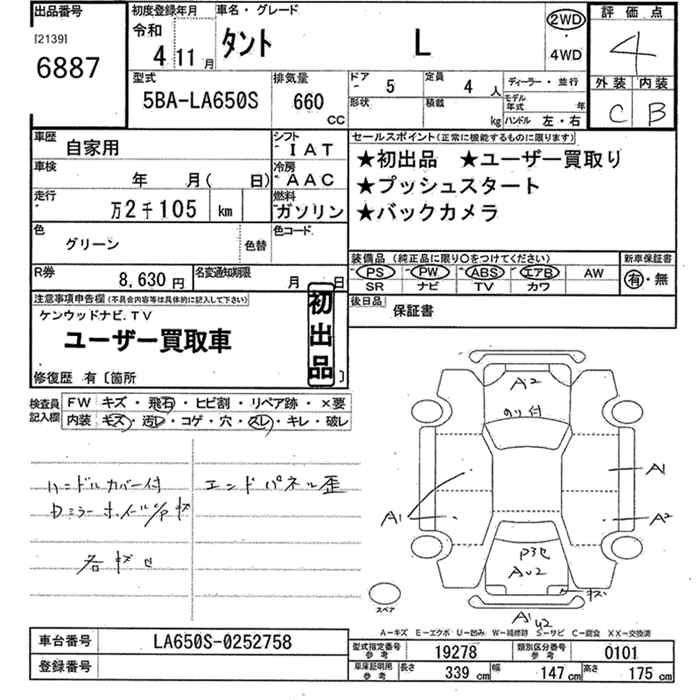 出品番号
[2139]
6887
初度登録年月
令和
4 11月
車名・グレード
タント L
2WD
・
4WD
評価点
4
外装 内装
C B
型式
5BA-LA650S
排気量
660 CC
ドア 5
形状
定員 4 人
積載 kg
ディーラー・並行
モデル年式 年
ハンドル 左・右
車歴 自家用
シフト IAT
車検 年 月( 日)
冷房 AAC
走行 万2千105 km
燃料 ガソリン
色 グリーン
色替
色コード
R券 8,630円
名変通知期限 月 日
セールスポイント(正常に機能するものに限ります)
★初出品 ★ユーザー買取り
★プッシュスタート
★バックカメラ
装備品(純正品に限り〇をつけてください)
新車保証書
PS PW ABS エアB AW
SR ナビ TV カワ
有・無
後日品 保証書
注意事項申告欄(不具合内容等は具体的に記入して下さい)
ケンウッドナビ.TV
ユーザー買取車
初出品
修復歴 有〔箇所 〕
検査員記入欄
FW キズ・飛石・ヒビ割・リペア跡・×要
内装 キズ・汚レ・コゲ・穴・スレ・キレ・破レ
ハンドルカバー付
エンドパネル歪
Dミラー ホイール
各キズ
A2
のり付
A1
A1
A2
A1
U2
キズ
スペア
A-キズ E-エクボ U-凹み W-補修跡 S-サビ C-腐食 XX-交換済
車台番号 LA650S-0252758
登録番号
型式指定番号 参考 19278
類別区分番号 参考 0101
車庫証明用 参考 長さ 339 cm 幅 147 cm 高さ 175 cm